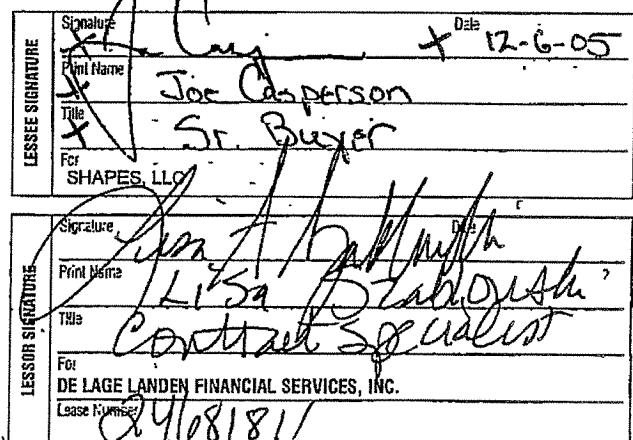 LESSEE SIGNATURE
Signature Date X 12-6-05
Print Name X Joe Casperson
Title X Sr. Buyer
For SHAPES, LLC
LESSOR SIGNATURE
Signature Lisa Date
Print Name Lisa
Title Contract Specialist
For
DE LAGE LANDEN FINANCIAL SERVICES, INC.
Lease Number